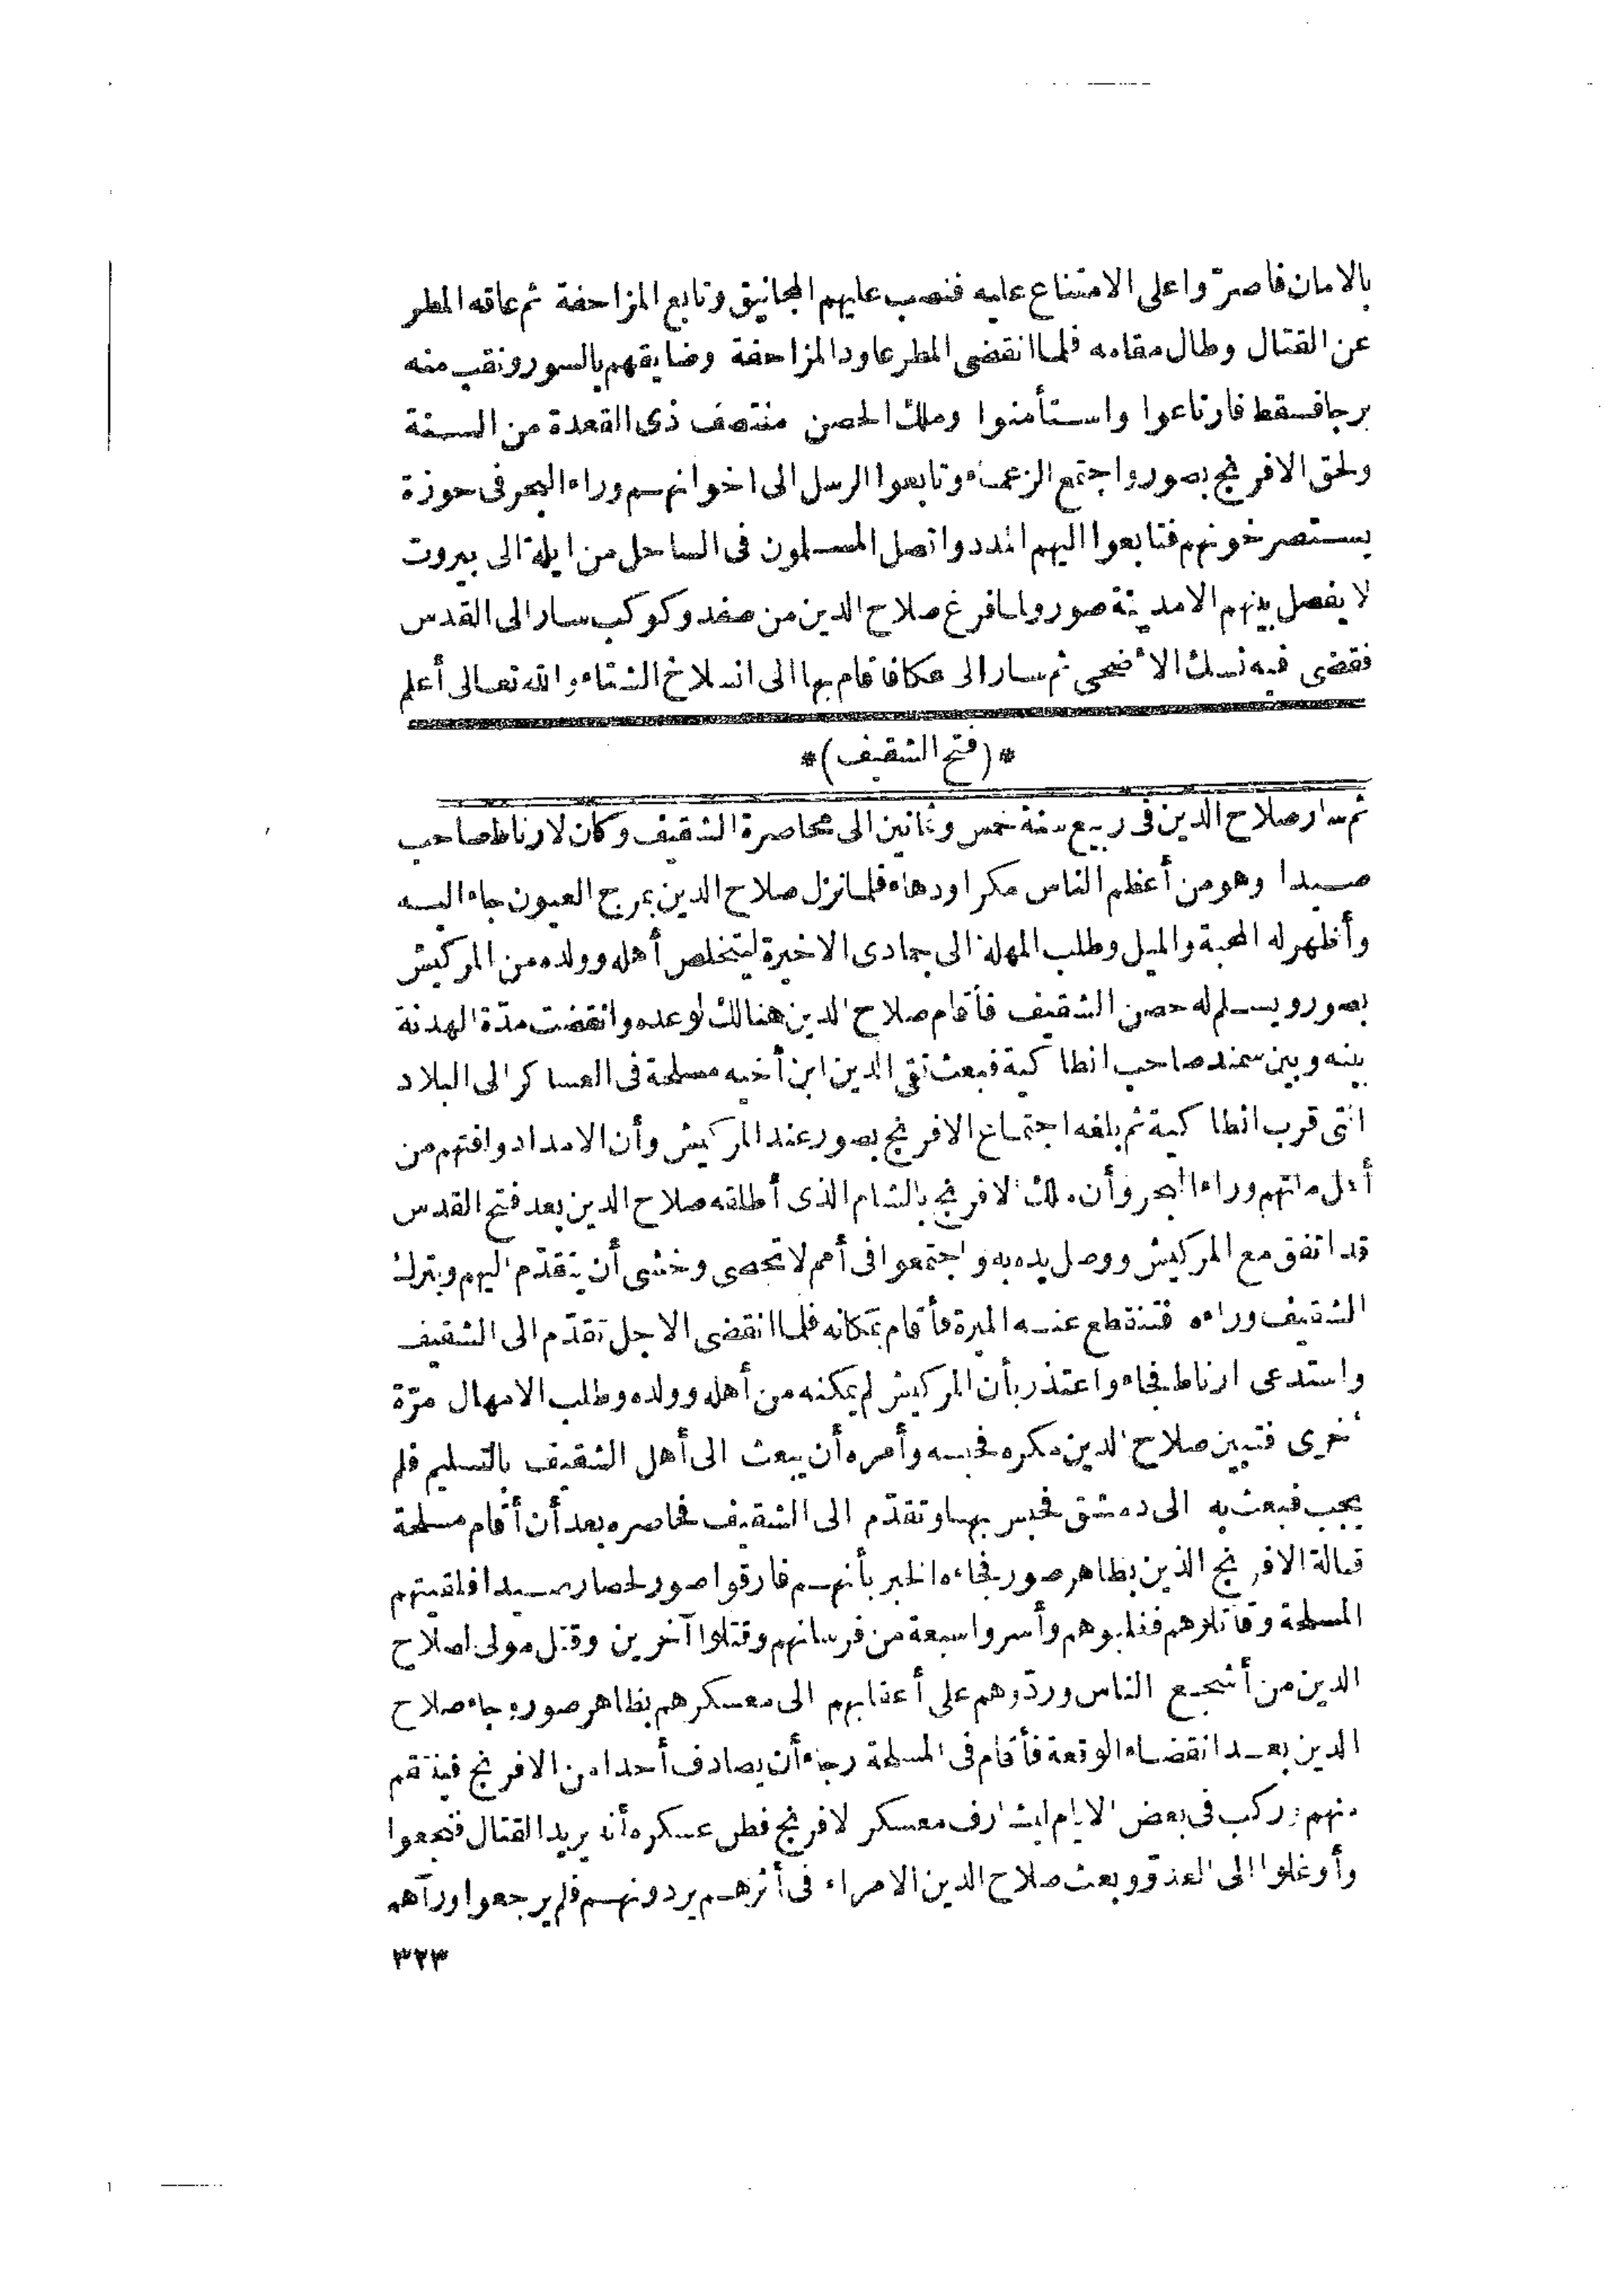 بالامان فاصرّوا على الامتناع عليه فنصب عليهم المجانيق وتابع المزاحفة ثم عاقه المطر
عن القتال وطال مقامه فلما انقضى المطر عاود المزاحفة وضايقهم بالسور ونقب منه
برجا فسقط فارتاعوا واستأمنوا وملك الحصن منتصف ذى القعدة من السنة
ولحق الافرنج بصور واجتمع الزعماء وتابعوا الرسل الى اخوانهم وراء البحر فى حوزة
يستصرخونهم فتابعوا اليهم المدد واتصل المسلمون فى الساحل من ايلة الى بيروت
لا يفصل بينهم الا مدينة صور ولما فرغ صلاح الدين من صفد وكوكب سار الى القدس
فقضى فيه نسك الأضحى ثم سار الى عكا فاقام بها الى انسلاخ الشتاء والله تعالى أعلم
*(فتح الشقيف)*
ثم سار صلاح الدين فى ربيع سنة خمس وثمانين الى محاصرة الشقيف وكان لارناط صاحب
صيدا وهو من أعظم الناس مكرا ودهاء فلما نزل صلاح الدين بمرج العيون جاء اليه
وأظهر له المحبة والميل وطلب المهلة الى جمادى الاخيرة ليتخلص أهله وولده من المركيش
بصور ويسلم له حصن الشقيف فأقام صلاح الدين هنالك لوعده وانقضت مدّة الهدنة
بينه وبين سمند صاحب انطاكية فبعث تقى الدين ابن أخيه مسلحة فى العساكر الى البلاد
التى قرب انطاكية ثم بلغه اجتماع الافرنج بصور عند المركيش وأن الامداد وافتهم من
أهل ملتهم وراء البحر وأن ملك الافرنج بالشام الذى أطلقه صلاح الدين بعد فتح القدس
قد اتفق مع المركيش ووصل يده به واجتمعوا فى أمم لا تحصى وخشى أن يتقدّم اليهم ويترك
الشقيف وراءه فتنقطع عنه الميرة فأقام بمكانه فلما انقضى الاجل تقدّم الى الشقيف
واستدعى ارناط فجاء واعتذر بأن المركيش لم يمكنه من أهله وولده وطلب الامهال مرّة
أخرى فتبين صلاح الدين مكره فحبسه وأمره أن يبعث الى أهل الشقيف بالتسليم فلم
يجب فبعث به الى دمشق فحبس بها وتقدّم الى الشقيف فحاصره بعد أن أقام مسلحة
قبالة الافرنج الذين بظاهر صور فجاءه الخبر بأنهم فارقوا صور لحصار صيدا فلقيتهم
المسلحة وقاتلوهم فغلبوهم وأسروا سبعة من فرسانهم وقتلوا آخرين وقتل مولى لصلاح
الدين من أشجع الناس وردّوهم على أعقابهم الى معسكرهم بظاهر صور وجاء صلاح
الدين بعد انقضاء الوقعة فأقام فى المسلحة رجاء أن يصادف أحدا من الافرنج فينتقم
منهم وركب فى بعض الايام ليشارف معسكر الافرنج فظن عسكره أنه يريد القتال فنجعوا
وأوغلوا الى العدوّ وبعث صلاح الدين الامراء فى أثرهم يردونهم فلم يرجعوا ورآهم
٣٢٣